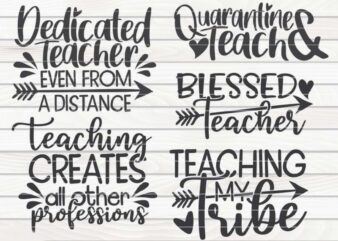 Dedicated
TEACHER
EVEN FROM
A DISTANCE
Quarantine
& TEACH
BLESSED
Teacher
teaching
CREATES
all other
professions
TEACHING
MY
Tribe